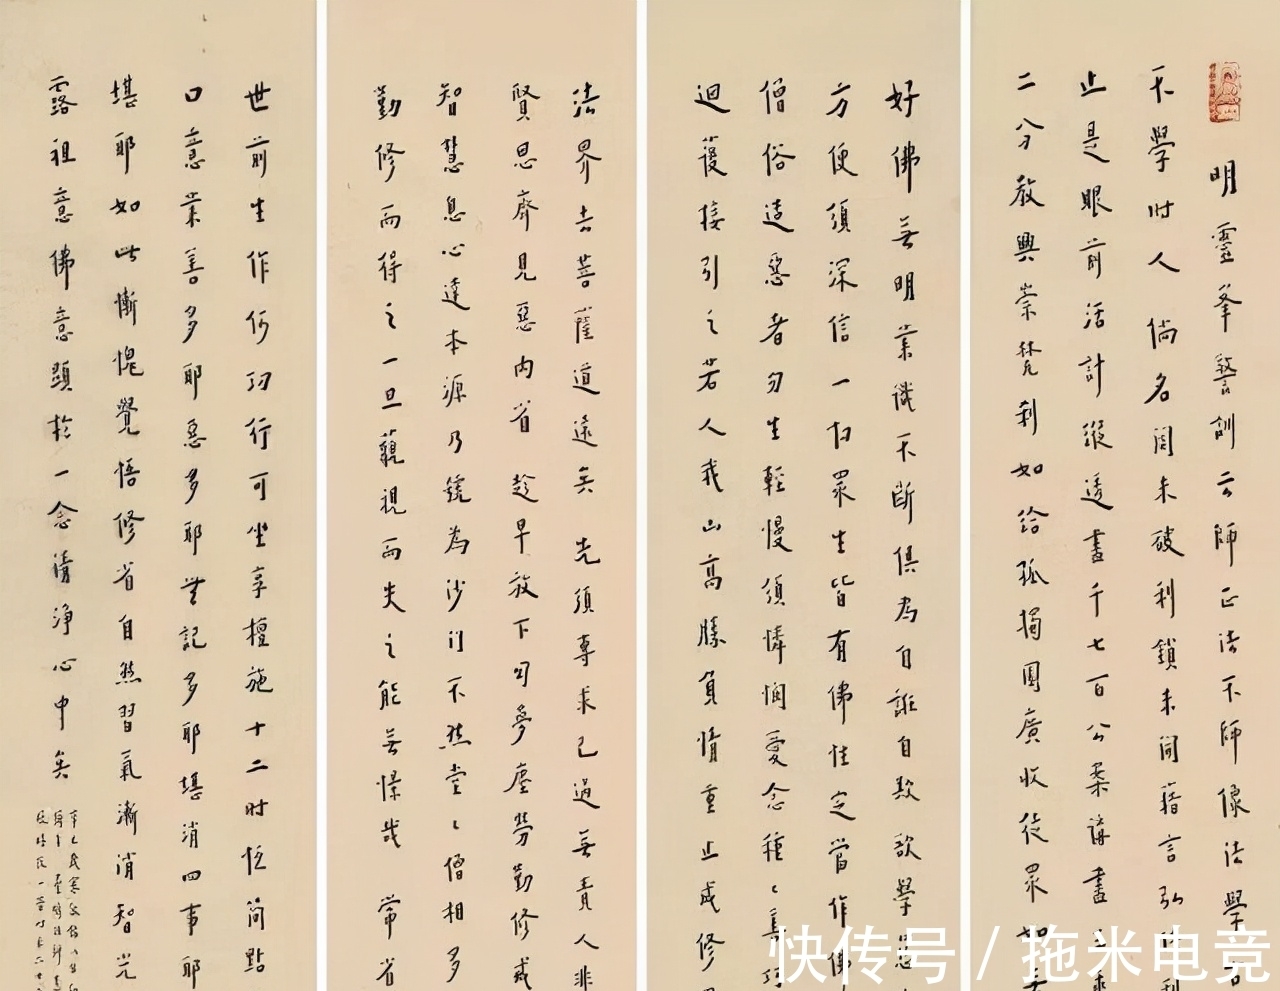 明靈峯警訓云師正法不師像法學古
不學時人倘名關未破利鎖未開藉言弘法利
止是眼前活計縱透盡千七百公案講盡三乘
二分教興崇梵刹如給孤獨園廣收徒眾如
好佛無明業識不斷俱為自誑自欺欲學
方便須深信一切眾生皆有佛性定當作佛
僧俗造惡者勿生輕慢須憐憫愛念種種善巧
迴護接引之若人我山高勝負情重止成修
法界去菩薩道遠矣先須專求己過無責人非
賢思齊見惡內省趁早放下幻夢塵勞勤修戒
智慧息心達本源乃號為沙門不然堂堂僧相多
勤修而得之一旦藐視而失之能無憬哉常省
世前生作何功行可坐享檀施十二時恆簡點
口意業善多耶惡多耶無記多耶堪消四事耶
堪耶如此慚愧覺悟修省自然習氣漸消智光
露祖意佛意顯於一念清淨心中矣
快传号/拖米电竞